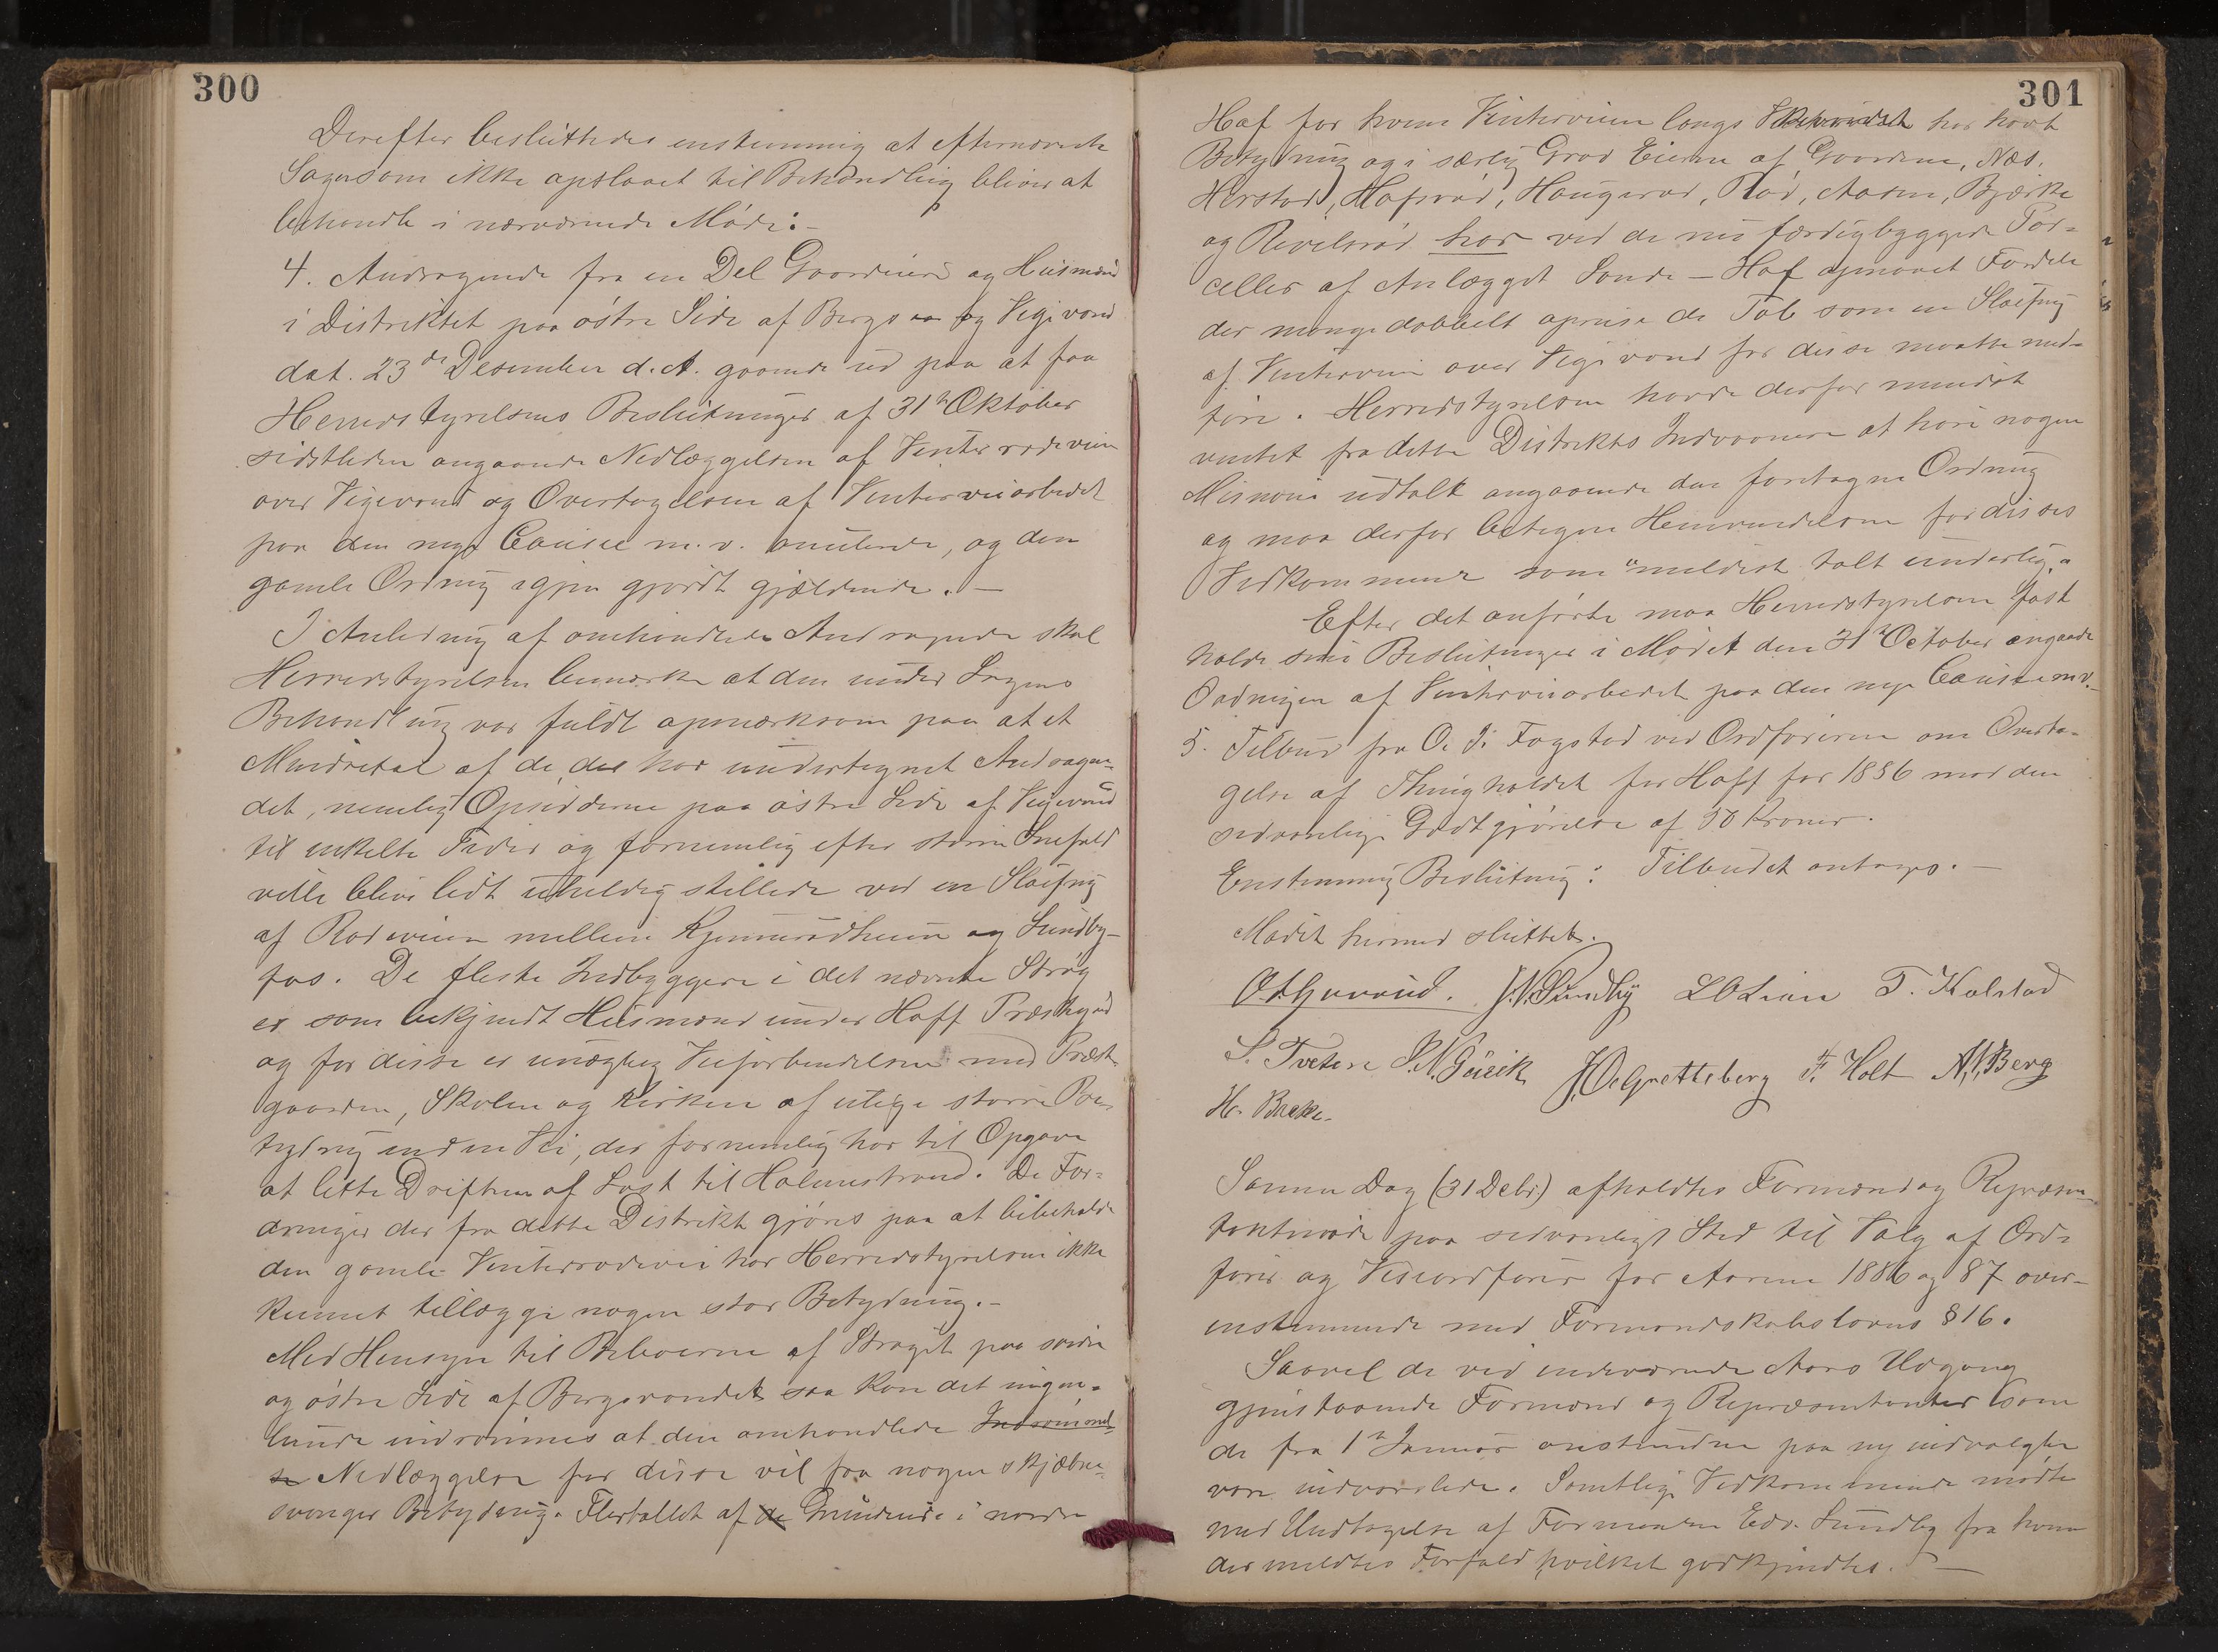 300
Derefter besluttedes enstemmig at efternævnte
Sager som ikke opslaaet til Behandling bliver at
behandle i nærværende Møde:-
4. Andragende fra en Del Gaardeiere og Husmænd
i Distriktet paa østre Side af Bergs og Vigevand
dat. 23de Desember d. A. gaaende ud paa at faa
Herredstyrelsens Beslutninger af 31te Oktober
sidstleden angaaende Nedlæggelsen af Vinterrodeveien
over Vigevand og Overtagelsen af Vinterveiarbeidet
paa den nye Causee m. v. anulerede, og den
gamle Ordning igjen gjordt gjældende. -
I Anledning af omhandlede Andragende skal
Herredstyrelsen bemærke at den under Sagens
Behandling var fuldt opmærksom paa at et
Mindretal af de, der har undertegnet Andragen-
det, nemlig Opsidderne paa østre Side af Vigevand
til enkelte Tider og fornemlig efter større Snefald
ville blive lidt uheldig stillede ved en Sløifning
af Rodeveien mellem og Sundby-
fos. De fleste Indbyggere i det nævnte Strøg
er som bekjendt Husmænd under Hoff Præstegård
og for disse er unægtelig Veiforbindelsen med Præst-
gaarden, Skolen og Kirken af utlige større Be-
tydning end en Vei, der fornemlig har til Opgave
at lette Driften af Last til Holmestrand. De For-
dringer der fra dette Distrikt gjøres paa at bibeholde
den gamle Vinterrodevei har Herredstyrelsen ikke
kunnet tillægge nogen stor Betydning.-
Med Hensyn til Beboerne af Strøget paa søndre
og østre Side af Bergsvandet saa kan det ingen-
lunde indrømmes at den omhandlede
Nedlæggelse for disse vil faa nogen skjæbne-
svanger Betydning. Flertallet af Grændene i nordre
301
Hof for hvem Vinterveien langs har havt
Betydning og i særlig Grad Eierne af Gaardene, Næs,
Herstad, Hafsrød, Haugerød, Rød, Aasen, Bjerke
og Revelsrød har ved de nu færdigbyggede Par-
celler af Anlægget Sande - Hof opnaaet Fordele
der mange dobbelt opveie de Tab som en Sløifning
af Vinterveien over Vigevand for disse maatte med-
føre. Herredstyrelsen havde derfor mindst
ventet fra dette Distrikts Indvaanere at høre nogen
Misnøie udtalt angaaende den foretagne Ordning
og maa derfor betegne Henvendelsen for disses
Vedkommende som "mildest talt underlig."
Efter det anførte maa Herredstyrelsen fast
holde sine Beslutninger i Mødet den 31te October angaaende
Ordningen af Vinterveiarbeidet paa den nye Causee m v.-
5. Tilbud fra O. J. Fogstad ved Ordføreren om Overta-
gelse af Thingholdet for Hoff for 1886 mod den
sedvanlige Godtgjørelse af 50 Kroner.
Enstemmig Beslutning: Tilbudet antages. -
Mødet hermed sluttet.
J. N. Sundby L O Lian T. Kolstad
S. Tveten S. N. Gusik J. O. Gretteberg F. Holt A. N. Berg
H. Bakke.
Samme Dag (31 Debr.) afholdtes Formænd og Repræsen-
tantmøde paa sedvanligt Sted til Valg af Ord-
fører og Viceordfører for Aarene 1886 og 87 over-
enstemmende med Formandskabslovens § 16.
Saavel de ved indeværende Aars Udgang
gjenstaaende Formænd og Repræsentanter som
de fra 1te Januar anstundne paa ny indvalgte
vare indvarslede. Samtlige Vedkommende mødte
med Undtagelse af Formanden Edv. Sundby fra hvem
der meldtes Forfald hvilket godkjendtes. -